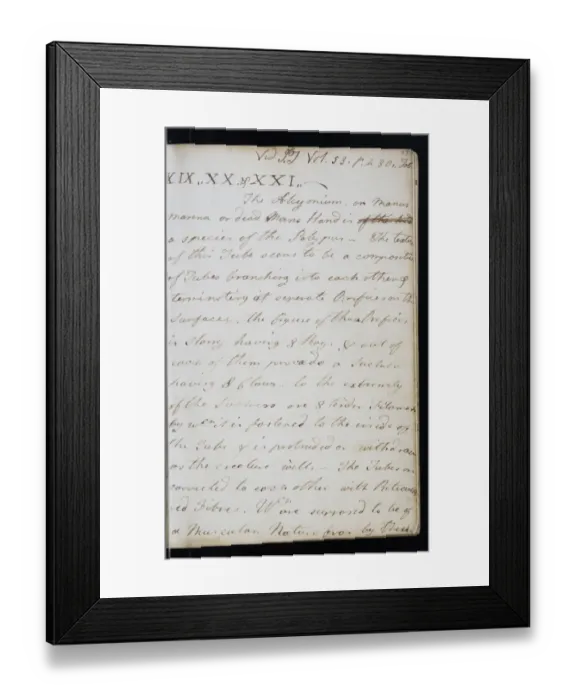 Vid Vol. 53. p.
XIX,, XX. & XXI,,
The Alcyonium, or Manus
marina or dead Mans Hand is of the
a species of the Polypus — The
of this Tube seems to be a
of Tubes branching into each other &
terminating at seperate Orifices on the
Surfaces. the figure of these Orifices
is Starry having 8 Rays. & out of
each of them proceeds a Sucker
having 8 Claws. to the extremity
of the Suckers are 8 tender
by wch it is fastened to the inside of
the Tube & is protruded or
as the creature wills. — The Tubes are
connected to each other with
Fibres. Wch are supposed to be of
a Muscular Nature by